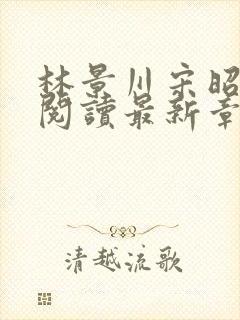 林景川宋昭
閱讀最新章
清越流歌